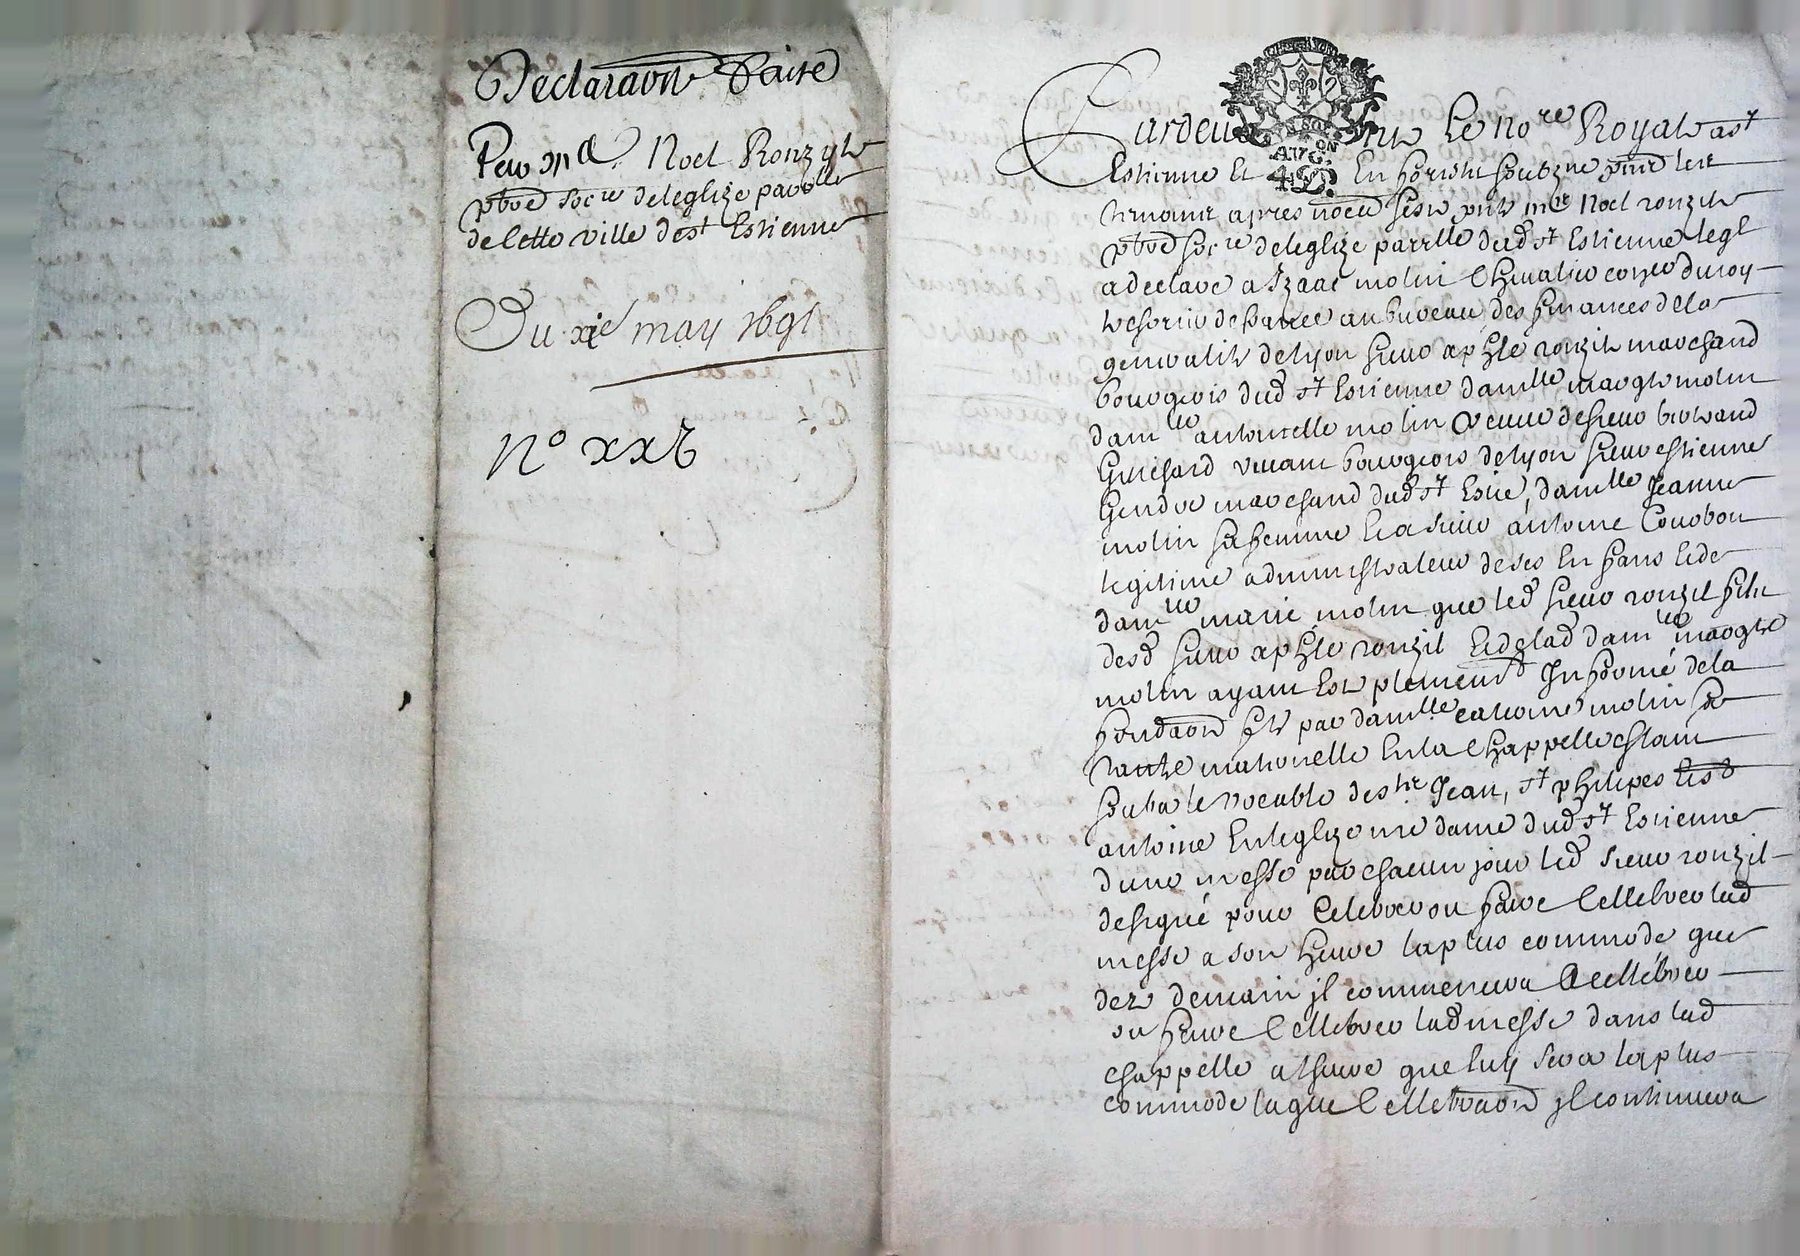 Declaraon Faite
Par Me Noel Ronzil
pbre socre de leglize parolle
de cette ville de st Estienne
Du xie may 1691
No xxb
Pardevant Le nore Royal a st
Estienne Et soubzne
apres nocu sest pnt me Noel ronzil
pbre socre de leglize parrlle dud st Estienne leql
a declaré a Izaac molin Chevalier conser du roy
tresorier de france au bureau des finances de la
generalité de lyon sieur ronzil marchand
bourgeois dud st Estienne damlle margte molin
damlle antoinette molin veuve de sieur bertrand
Guichard vivant bourgeois de lyon sieur estienne
marchand dud st Estie, damlle Jeanne
molin sa femme Et a sieur antoine Courbon
legitime administrateur de ses Enfans Et de
damlle marie molin que led sieur ronzil fils
desd sieur ronzil Et de lad damlle margte
molin ayant Esté plenemt Informé de la
fondaon fte par damlle caterine molin sa
tante maternelle En la Chappelle estant
soubz le vocable de st Jean, st philipes Et st
antoine En leglize nre dame dud st Estienne
dune messe par chacun jour led sieur ronzil
designé pour Celebrer ou faire Cellebrer lad
messe a son heure la plus commode que
dez demain jl commencera a cellébrer
ou faire Cellebrer lad messe dans lad
chappelle a lheure que luy sera la plus
commode laquelle Cellebraon jl continuera
AVG.